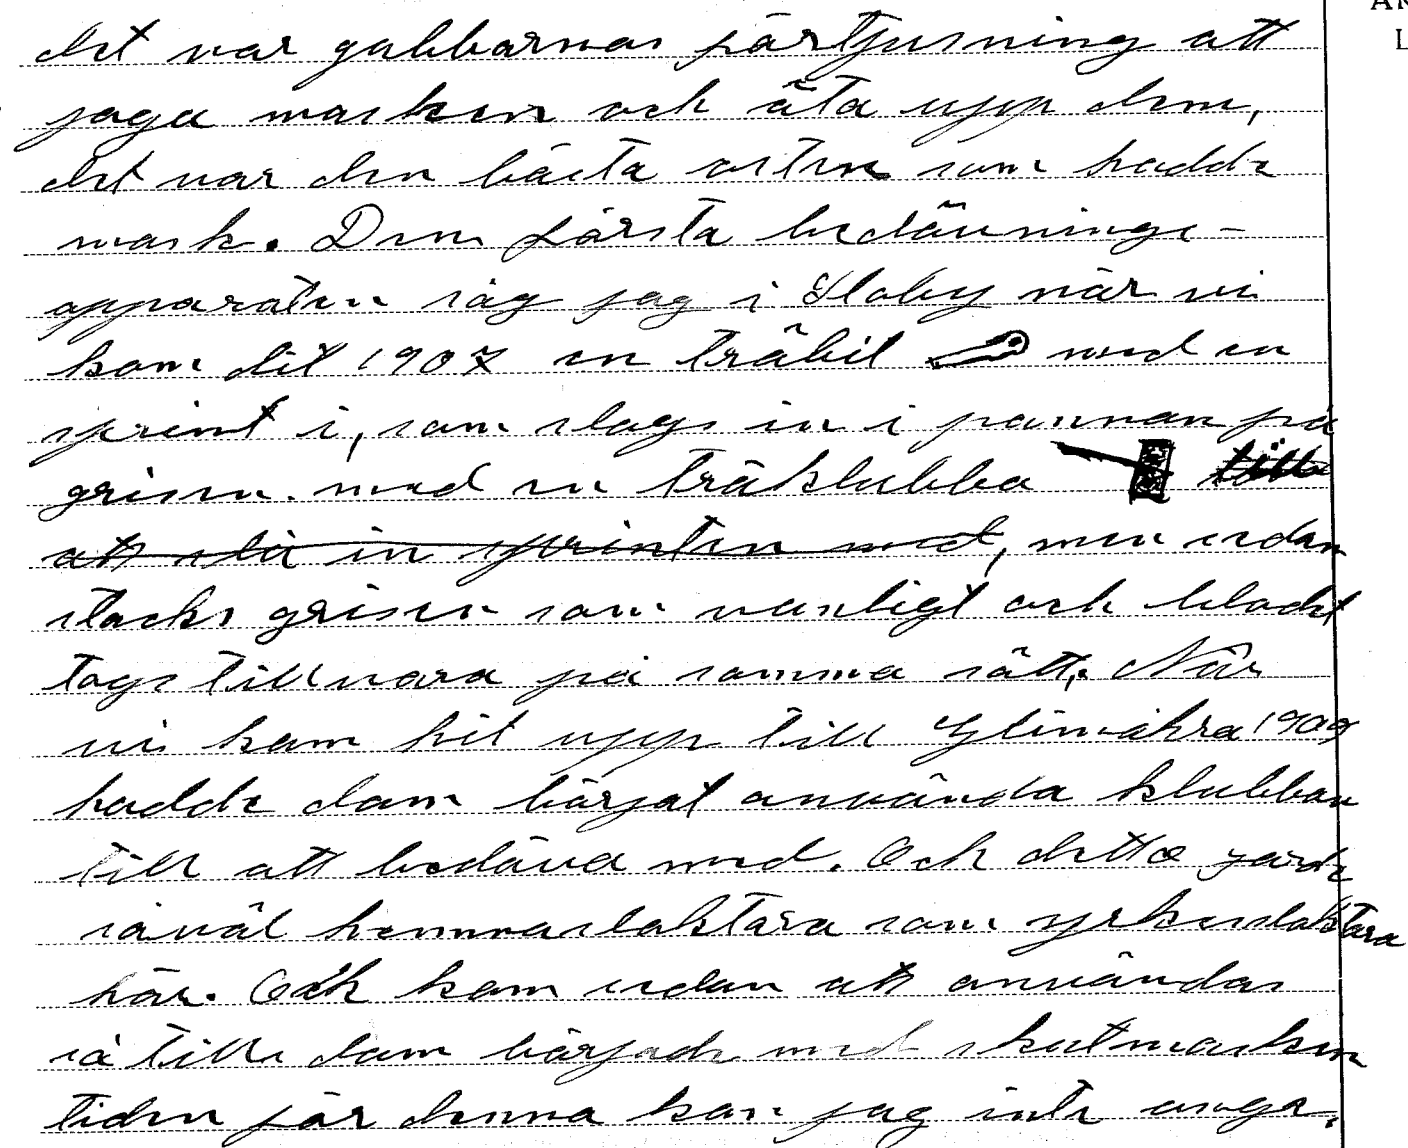 det var gubbarnas förtjusning att
jaga masken och äta upp dem,
det var den bästa osten som hadde
mask. Den första bedövnings-
apparaten såg jag i Östoby när vi
kom dit 1907 en träbit med en
sprint i, som slogs in i pannan på
grisen. med en träklubba till
att slå in sprinten med, men sedan
stacks grisen som vanligt och blodet
togs tillvara på samma sätt. När
vi kom hit upp till Glimåkra 1909
hadde dom börjat använda klubban
till att bedöva med. Och detta gjorde
såväl hemmaslaktara som yrkesslaktara
här. Och kom sedan att användas
så till dom började med skutmasken
tiden för denna kan jag inte ange.